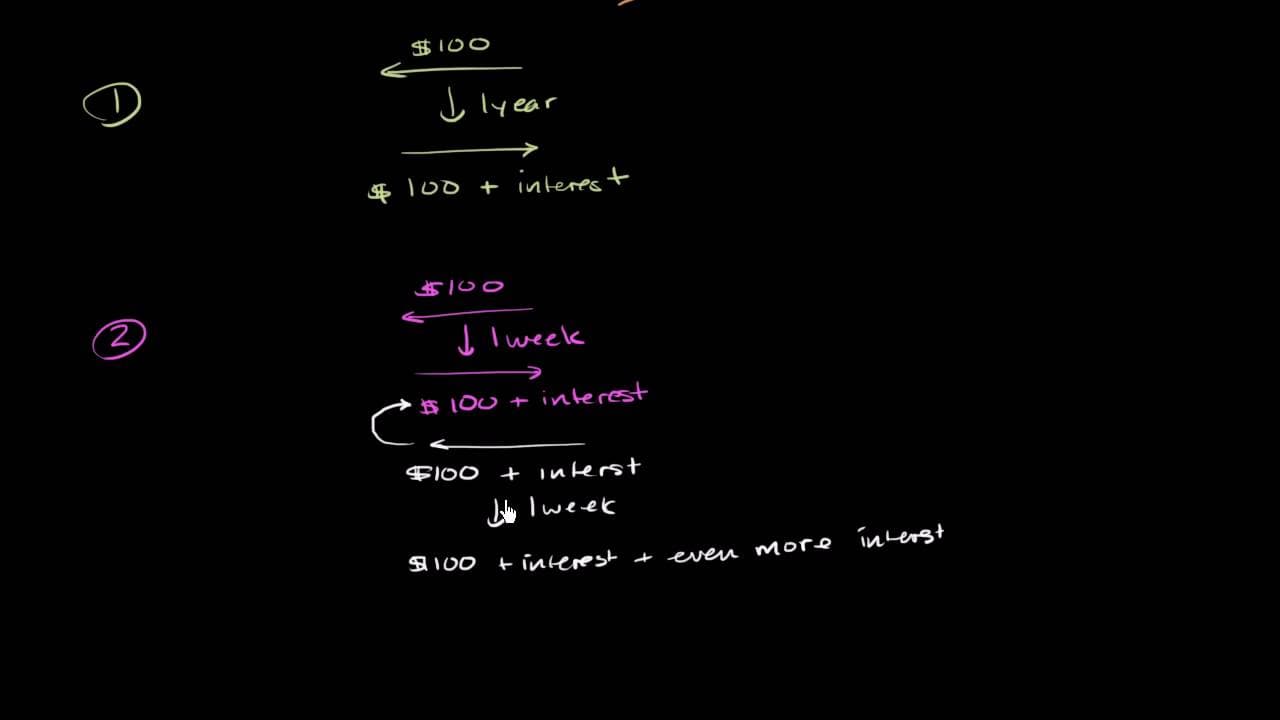 $100
1
↓ 1year
$ 100 + interest
$100
2
↓ 1week
$100 + interest
$100 + interst
↓ 1week
$100 + interest + even more interst